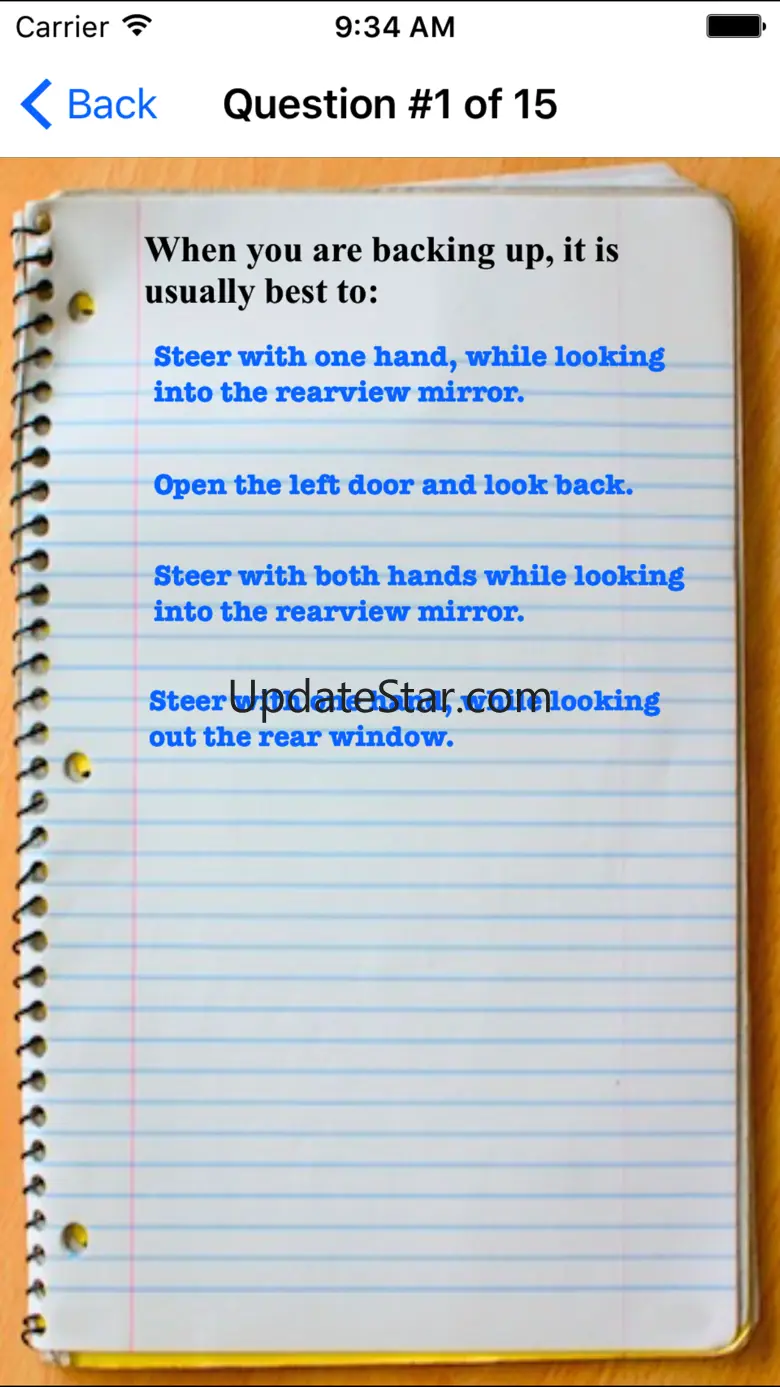 Carrier 9:34 AM
Back Question #1 of 15
When you are backing up, it is
usually best to:
Steer with one hand, while looking
into the rearview mirror.
Open the left door and look back.
Steer with both hands while looking
into the rearview mirror.
Steer with one hand, while looking
UpdateStar.com
out the rear window.